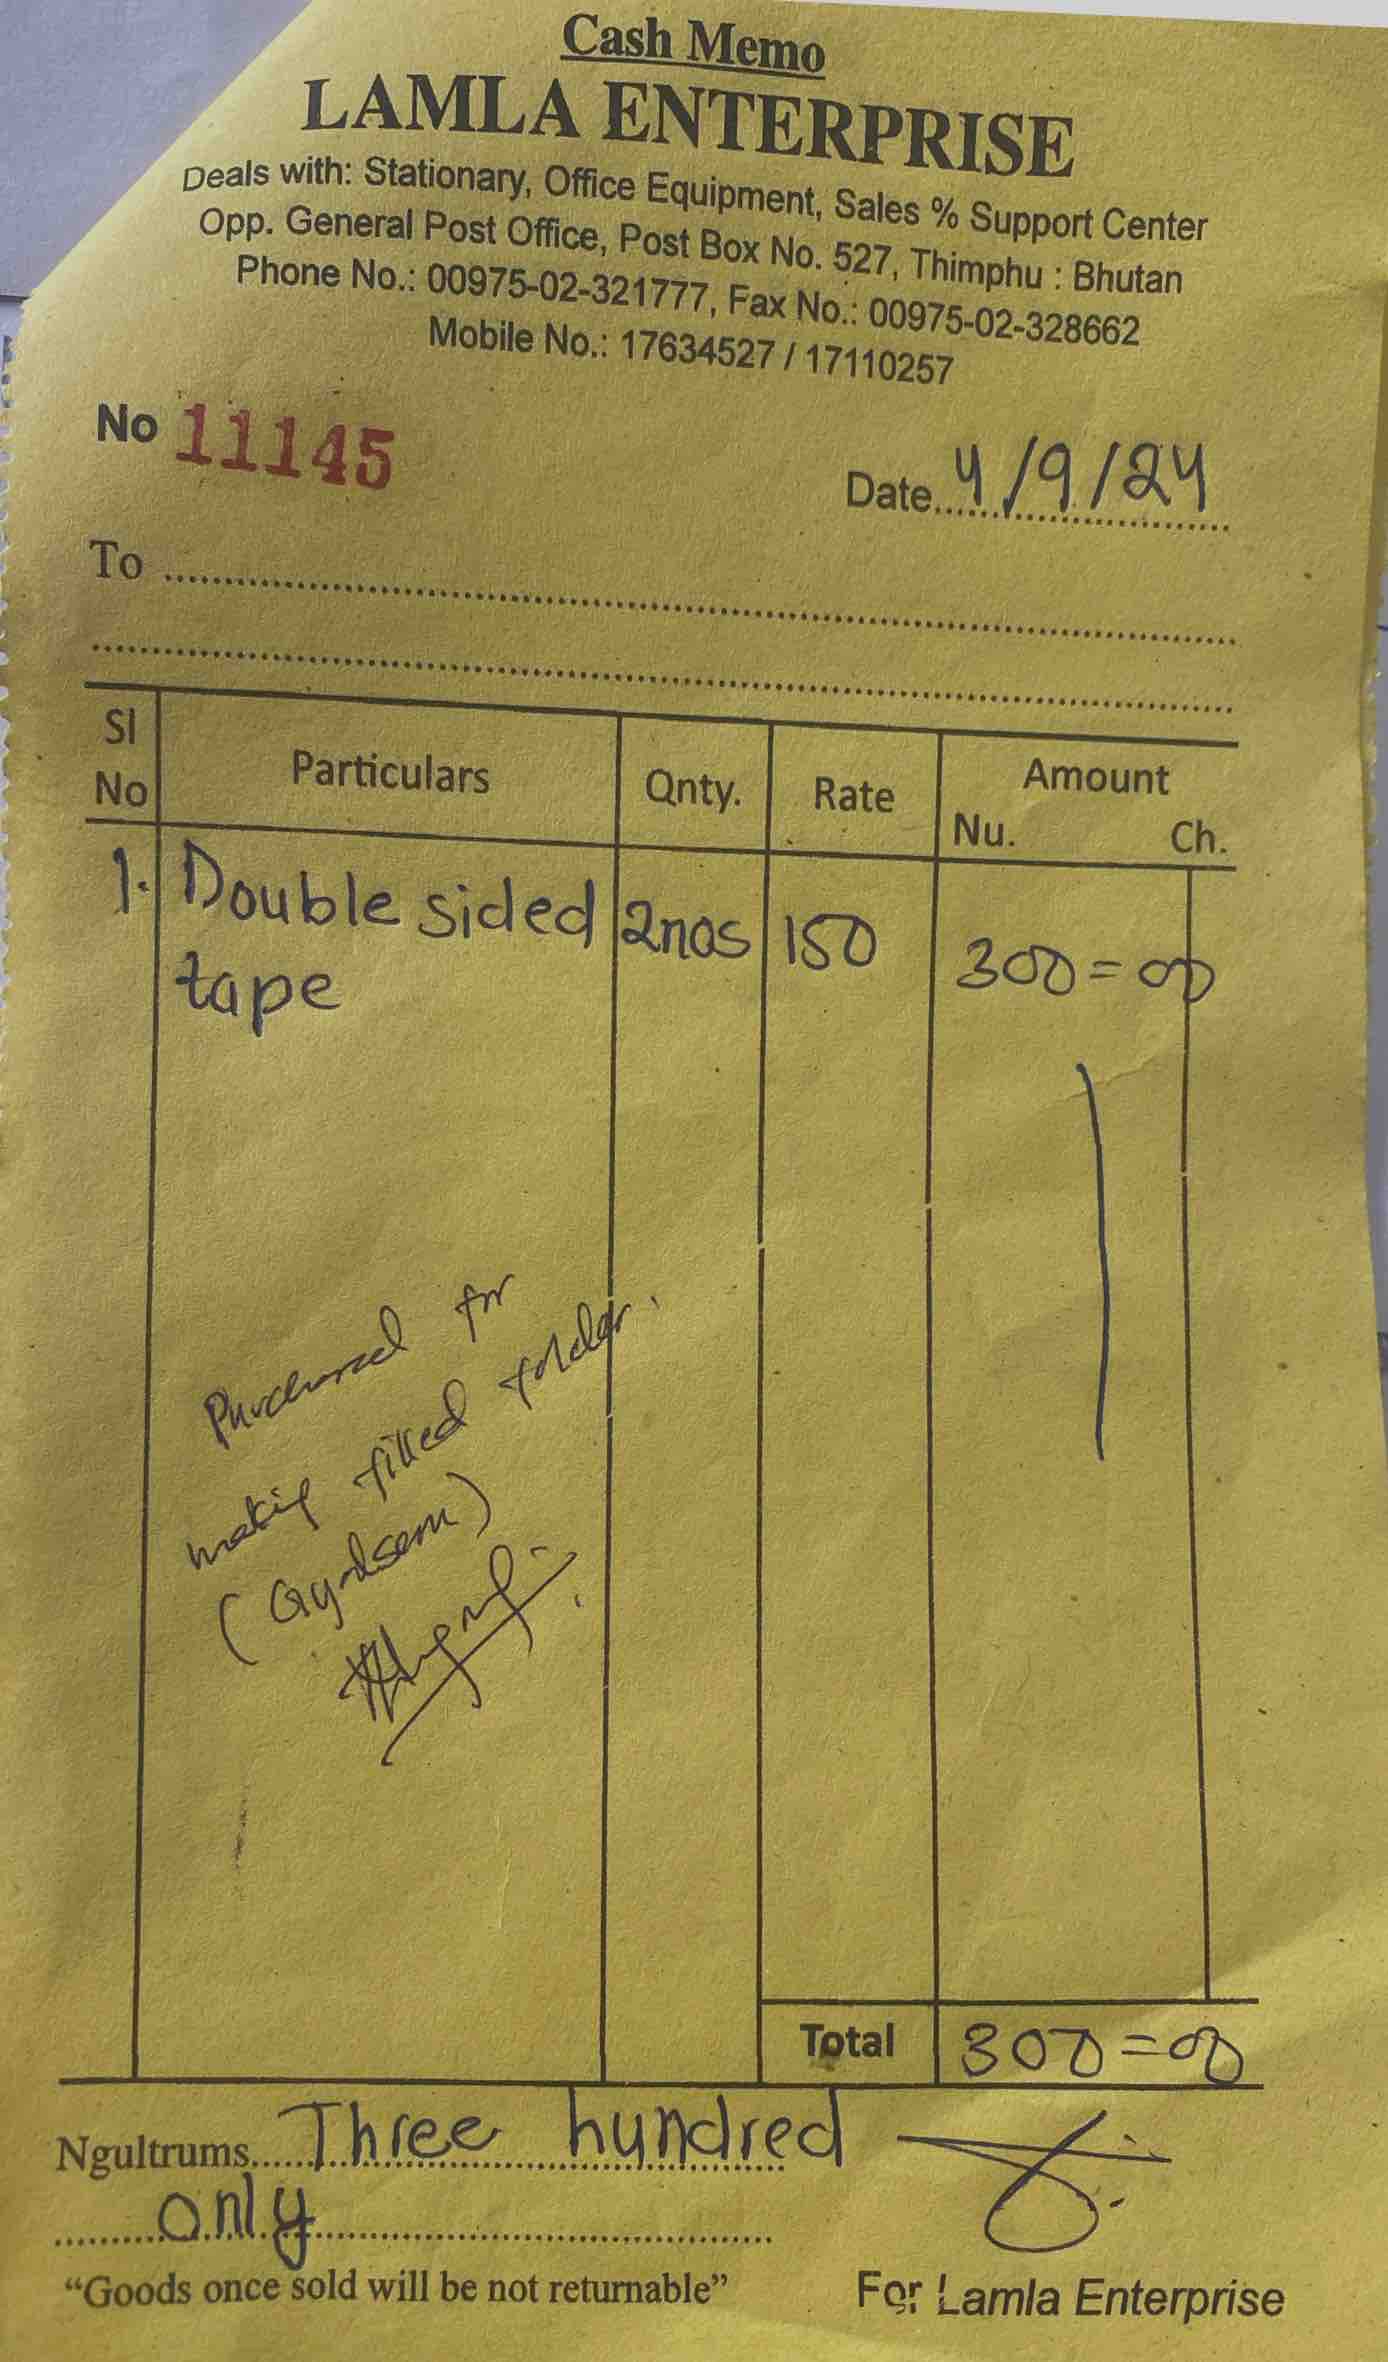 Cash Memo
LAMLA ENTERPRISE
Deals with: Stationary, Office Equipment, Sales % Support Center
Opp. General Post Office, Post Box No. 527, Thimphu : Bhutan
Phone No.: 00975-02-321777, Fax No.: 00975-02-328662
Mobile No.: 17634527 / 17110257
No 11145
Date 4/9/24
To
Sl No Particulars Qnty. Rate Amount
Nu. Ch.
1. Double sided 2nos 150 300=00
tape
Purchased for
making filled folder.
Total 300=00
Ngultrums Three hundred
only
“Goods once sold will be not returnable” For Lamla Enterprise